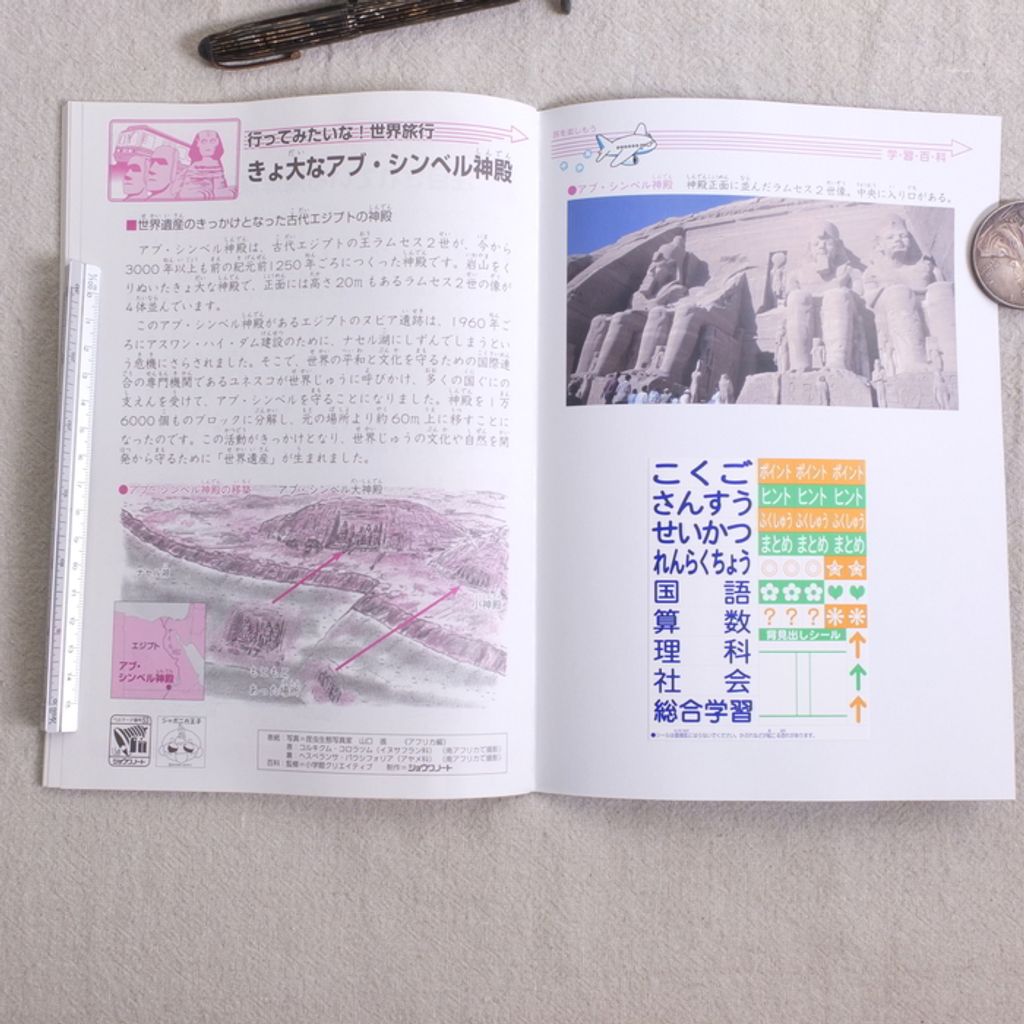 行ってみたいな！世界旅行
きょ大なアブ・シンベル神殿
■世界遺産のきっかけとなった古代エジプトの神殿
アブ・シンベル神殿は、古代エジプトの王ラムセス2世が、今から
3000年以上も前の紀元前1250年ごろにつくった神殿です。岩山をく
りぬいたきょ大な神殿で、正面には高さ20mもあるラムセス2世の像が
4体並んでいます。
このアブ・シンベル神殿があるエジプトのヌビア遺跡は、1960年ご
ろにアスワン・ハイ・ダム建設のために、ナセル湖にしずんでしまうとい
う危機にさらされました。そこで、世界の平和と文化を守るための国際連
合の専門機関であるユネスコが世界じゅうに呼びかけ、多くの国ぐにの
支えんを受けて、アブ・シンベルを守ることになりました。神殿を1万
6000個ものブロックに分解し、元の場所より約60m上に移すことに
なったのです。この活動がきっかけとなり、世界じゅうの文化や自然を開
発から守るために「世界遺産」が生まれました。
●アブ・シンベル神殿の移築
アブ・シンベル大神殿
ナセル湖
小神殿
エジプト
アブ・
シンベル神殿
もともと
あった場所
ジャポニカの王子
ショウワノート
表紙：写真＝昆虫生態写真家 山口 進 《アフリカ編》
表：コルキクム・コロラツム（イヌサフラン科）（南アフリカで撮影）
裏：ヘスペランサ・パウシフォリア（アヤメ科）（南アフリカで撮影）
百科：監修＝小学館クリエイティブ 制作＝ショウワノート
旅を楽しもう
学・習・百・科
●アブ・シンベル神殿 神殿正面に並んだラムセス2世像。中央に入り口がある。
こくご
さんすう
せいかつ
れんらくちょう
国語
算数
理科
社会
総合学習
ポイント ポイント ポイント
ヒント ヒント ヒント
ふくしゅう ふくしゅう ふくしゅう
まとめ まとめ まとめ
? ? ?
背見出しシール